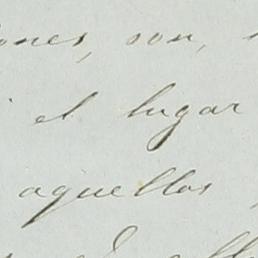 ones, son,
el lugar
aquellos